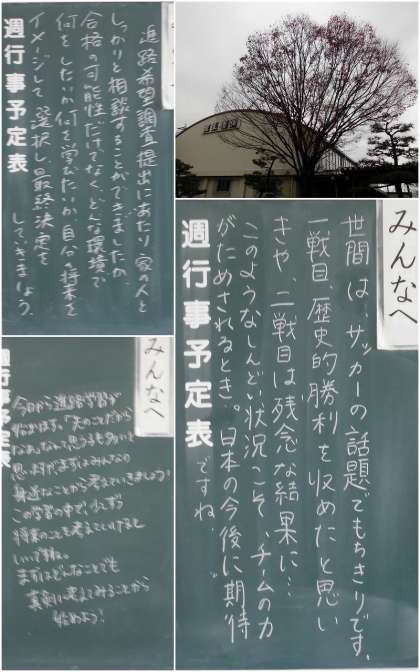 進路希望調査提出にあたり、家の人と
しっかりと相談することができましたか。
合格の可能性だけでなく、どんな環境で
何をしたいか、何を学びたいか、自分の将来を
イメージして、選択し、最終決定を
していきましょう。
週行事予定表
みんなへ
世間は、サッカーの話題でもちきりです。
一戦目、歴史的勝利を収めたと思い
きや、二戦目は残念な結果に…
このようなしんどい状況こそ、チームの力
がためされるとき。日本の今後に期待
ですね。
週行事予定表
みんなへ
今日から進路学習が
始まります。「先のことだから
なぁ」なんて思う子も多いと
思いますが、まずはみんなの
身近なことから考えていきましょう。
この学習の中で、少しずつ
将来のことを考えていけると
いいですね。
まずはどんなことでも
真剣に考えてみることから
始めよう!
週行事予定表